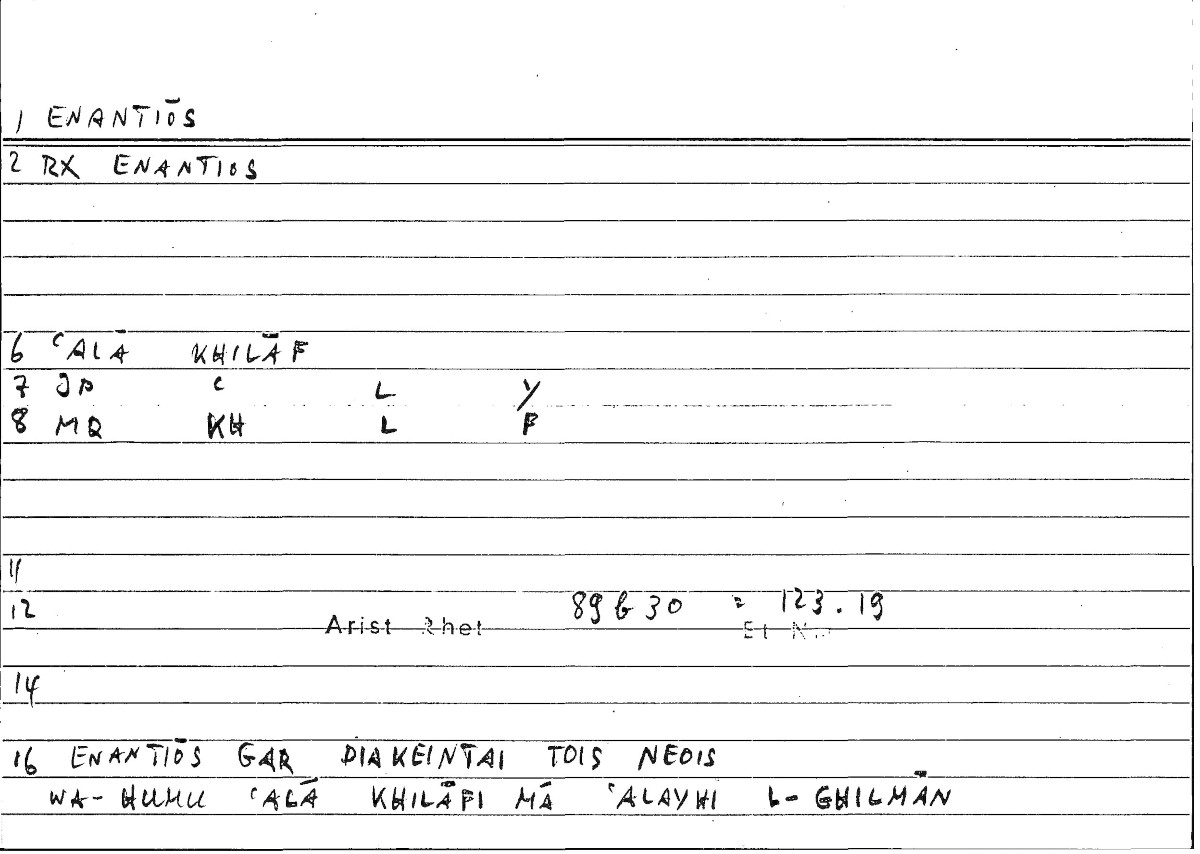 1 ENANTIŌS
2 RX ENANTIOS
6 ʿALĀ KHILĀF
7 JP ʿ L Y
8 MQ KH L F
11
12 Arist Rhet 89b30 = 123.19
14
16 ENANTIŌS GAR DIAKEINTAI TOIS NEOIS
WA-HUMU ʿALĀ KHILĀFI MĀ ʿALAYHI L-GHILMĀN